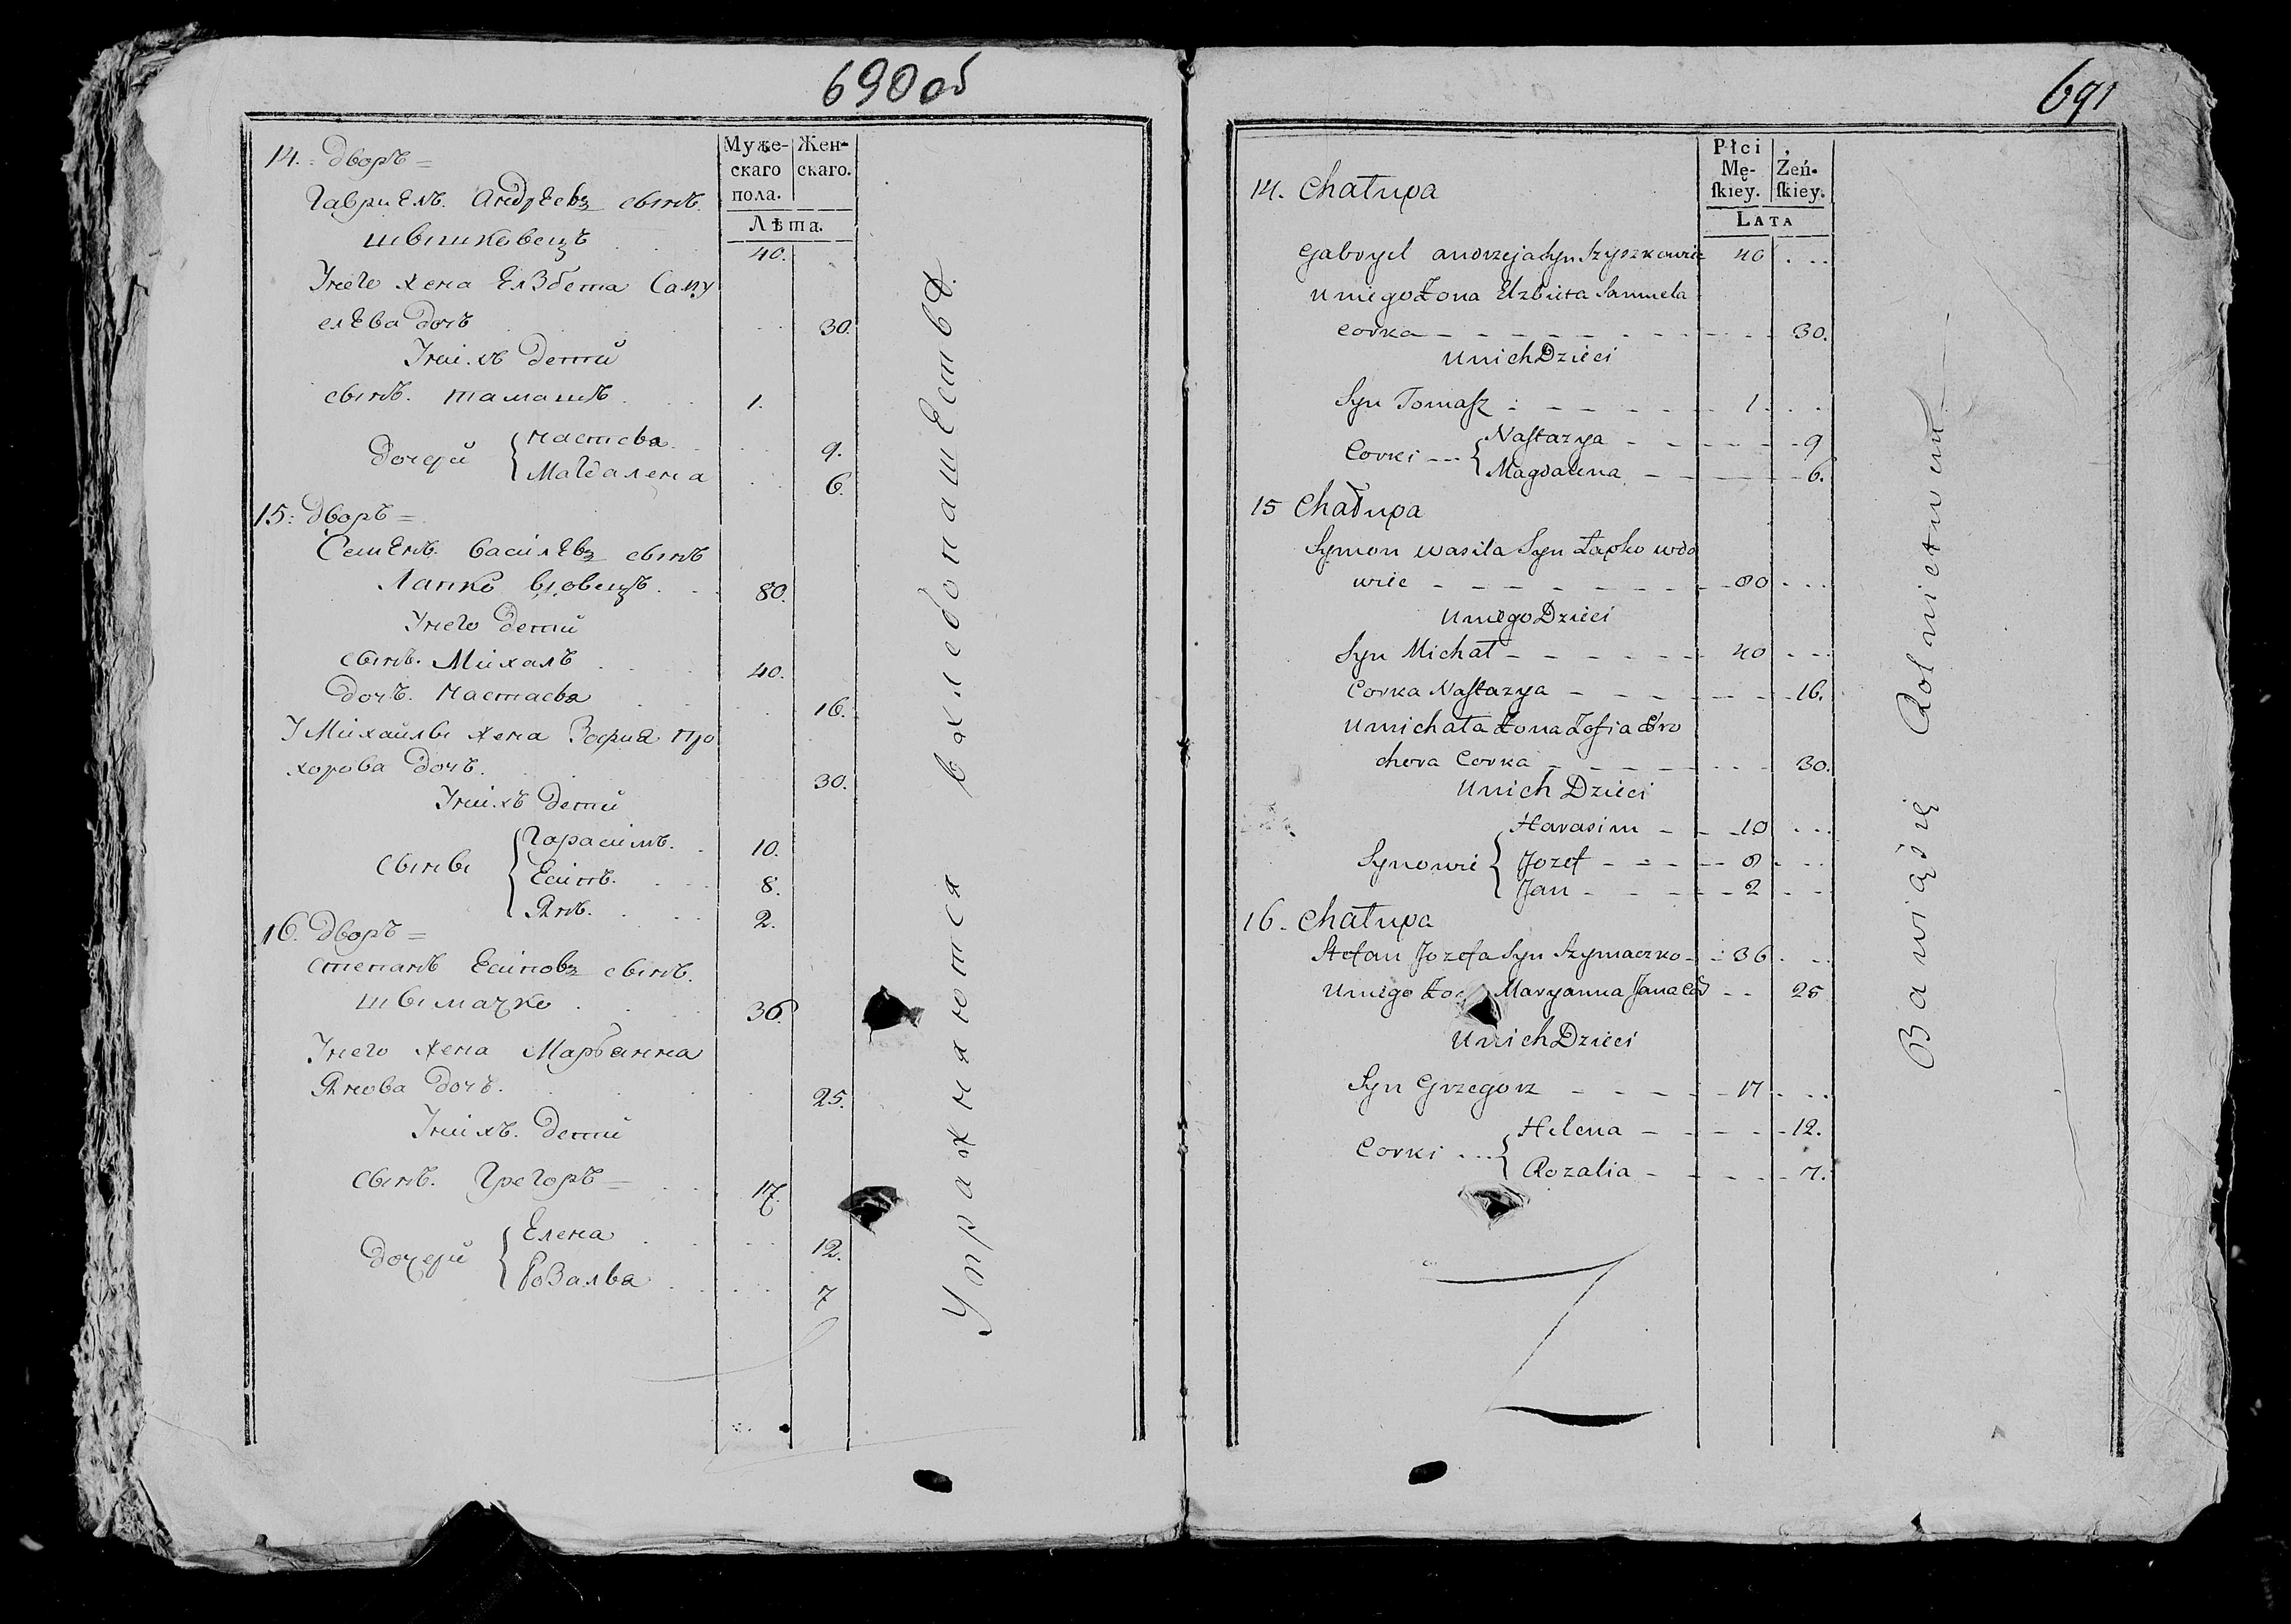 690 об
Муже-
скаго
пола.
Жен-
скаго.
Лѣта.
14. дворъ =
Гавриелъ Андреевъ сынъ
шышковецъ 40.
Унего жена Елзбета Саму
елева дочъ 30.
Унихъ дети
сынъ томашъ 1.
дочери { настася 9.
Магдалена 6.
15: дворъ =
Семенъ василевъ сынъ
Лапко вдовецъ 80.
Унего дети
сынъ Михалъ 40.
дочъ настася 16.
У Михайлы жена Зофия про
хорова дочъ 30.
Унихъ дети
сыны { Гарасимъ 10.
Есипъ 8.
Янъ 2.
16. дворъ =
степанъ Есиповъ сынъ
шымачко 36.
Унего жена Марьянна
Янова дочъ 25.
Унихъ дети
сынъ Грегоръ = 17.
дочери { Елена 12.
Розалья 7
Упражняются вхлебопашестве
691
Płci
Mę-
ſkiey.
Żeń-
ſkiey.
LATA
14. Chałupa
Gabryel Andrzeja Syn Szyszkowic 40
u niego Żona Elzbieta Samuela
corka 30.
U nich Dzieci
Syn Tomaſz 1
Corki { Naſtazya 9
Magdalena 6.
15 Chałupa
Symon wasila Syn Łapko wdo
wiec 80
U niego Dzieci
Syn Michał 40
Corka Naſtazya 16.
U michała Żona Zofia Pro
chora Corka 30.
U nich Dzieci
Synowie { Harasim 10
Jozef 8
Jan 2
16. Chałupa
Stefan Jozefa Syn Szymaczko 36
U niego Żo Maryanna Jana Cor 25
U nich Dzieci
Syn Grzegorz 17
Corki { Helena 12.
Rozalia 7.
Bawią się Rolnictwem